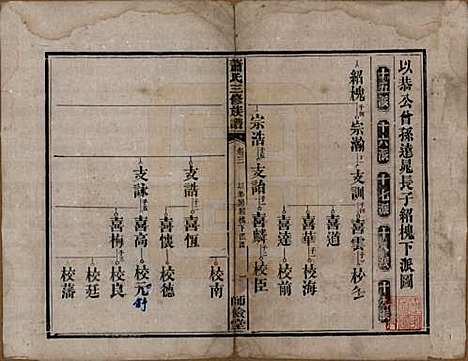 以恭公曾孫達晁長子紹槐下派圖
十五派
十六派
十七派
十八派
十九派
紹槐 宗瀚 支訓 喜雲
喜道
喜華 校海
喜達 校前
宗浩 支詒 喜麟 校臣
蕭氏三修族譜
卷三
師儉堂
校南
支誥 喜恆
喜懷 校德
支詠 喜高 校元
喜梅 校良
校廷
校藩